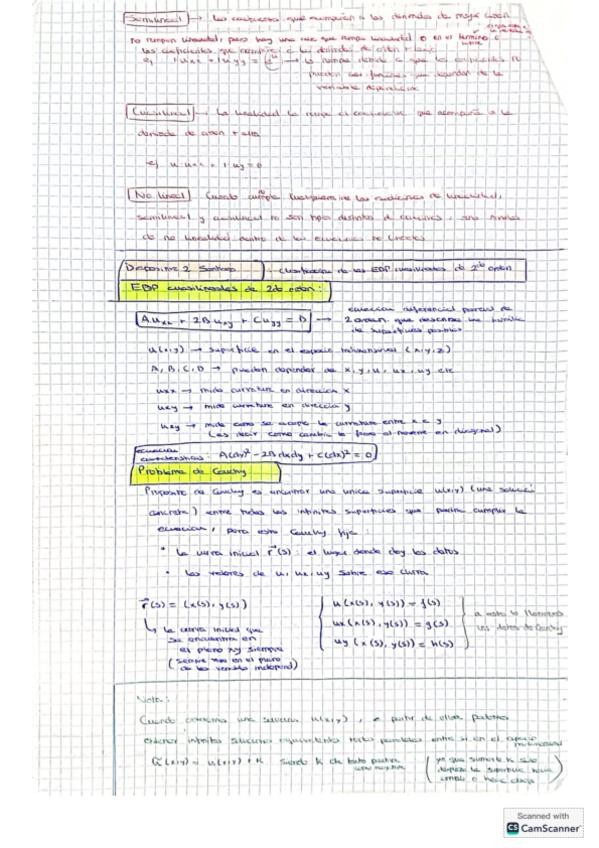 Semilineal → los coeficientes que acompañan a las derivadas de mayor orden
no rompen linealidad, pero hay una vez que rompe linealidad o en el término
los coeficientes que acompañan a la derivada de orden + bajo
ej 1 uxx + 1 uyy =
variable dependiente
Cuasilineal → La linealidad la rompe el coeficiente que acompaña a la
derivada de orden + alto
ej u·uxx + 1·uy = 0
No lineal Cuando
semilineal y cuasilineal no son tipos distintos de ecuaciones, sino niveles
de no linealidad dentro de las ecuaciones no lineales
Diapositiva 2 : Clasificación de las EDP cuasilineales de 2do orden
EDP cuasilineales de 2do orden:
Auxx + 2Buxy + Cuyy = D → ecuación diferencial parcial de
2 orden que describe una familia
de superficies posibles
u(x,y) → superficie en el espacio tridimensional (x,y,z)
A, B, C, D → pueden depender de x, y, u, ux, uy etc
uxx → mide curvatura en dirección x
→ mide curvatura en dirección y
→ mide como se acopla la curvatura entre x e y
(es decir como cambia la al moverse en diagonal)
ecuación
característica: A(dy)² - 2B dxdy + C(dx)² = 0
Problema de Cauchy
Propósito de Cauchy es encontrar una única superficie u(x,y) (una solución
concreta) entre todas las infinitas superficies que podrían cumplir la
ecuación, para esto Cauchy fija:
• la curva inicial r(s): el lugar donde doy los datos
• los valores de u, ux, uy sobre esa curva
r(s) = (x(s), y(s))
↳ la curva inicial que
se encuentra en
el plano xy siempre
(siempre en el plano
de las variables independ)
u(x(s), y(s)) = f(s)
ux(x(s), y(s)) = g(s)
uy(x(s), y(s)) = h(s)
a esto lo llamamos
los datos de Cauchy
Nota:
Cuando tenemos una solución u(x,y), a partir de ella podemos
obtener infinitas soluciones equivalentes todas paralelas entre sí en el espacio
tridimensional
ũ(x,y) = u(x,y) + K siendo K cte
(ya que sumarle K solo
desplaza la superficie hacia
arriba o hacia abajo)
Scanned with
CS CamScanner